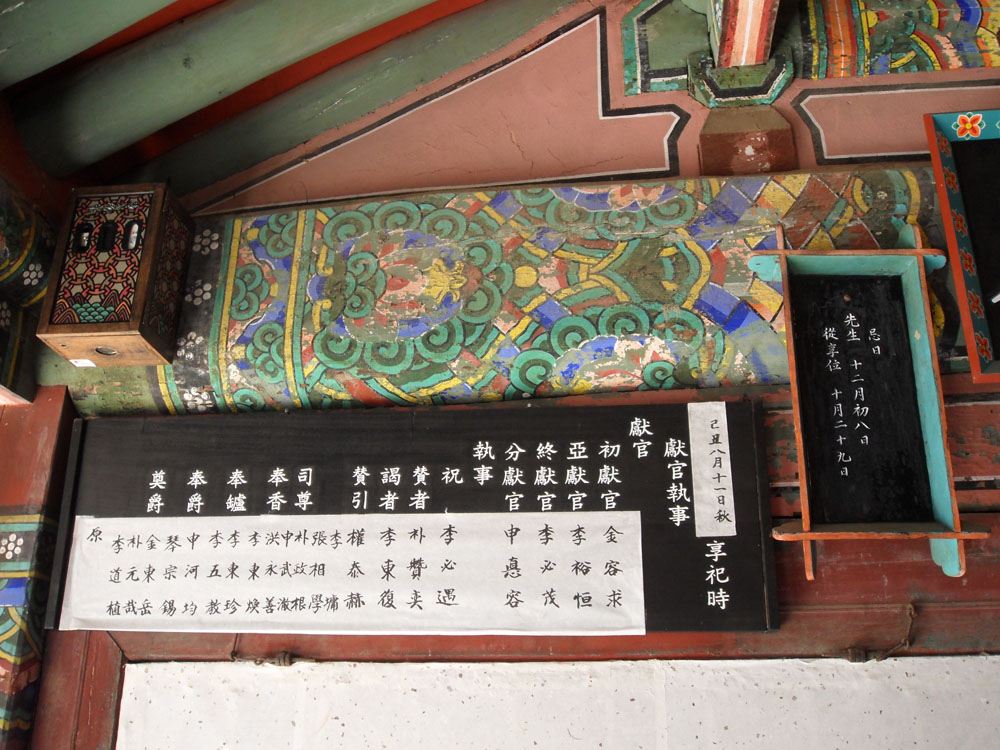 忌日
先生 十二月初八日
從享位 十月二十九日
己丑八月十一日秋 享祀時
獻官執事
獻官
初獻官 金容求
亞獻官 李裕恒
終獻官 李必茂
分獻官 申悳容
執事
祝 李必遇
贊者 朴贊奕
謁者 李東復
贊引 權泰赫
李墉
張相學
司尊 朴政根
申武澈
奉香 洪永善
李東煥
奉鑪 李東珍
李五敎
奉爵 申河均
琴宗錫
奠爵 金東岳
朴元哉
李道植
原